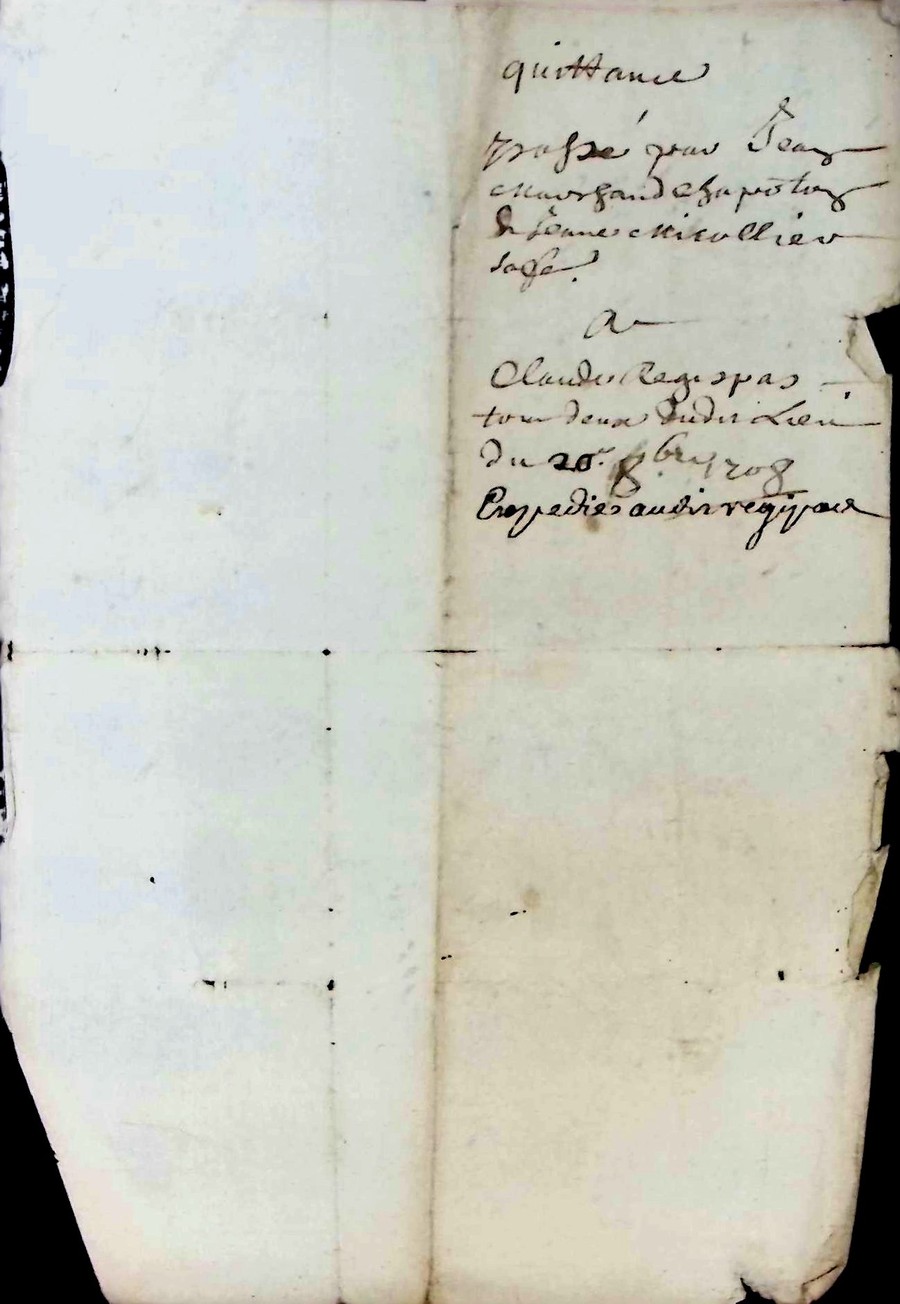 quittance
passé par Jean
Marchand
& Jeanne Micollier
sa fe.
A
Claude Regispas
tous deux dudit Lieu
du 20e 8bre 1708
Expediée audit regipas